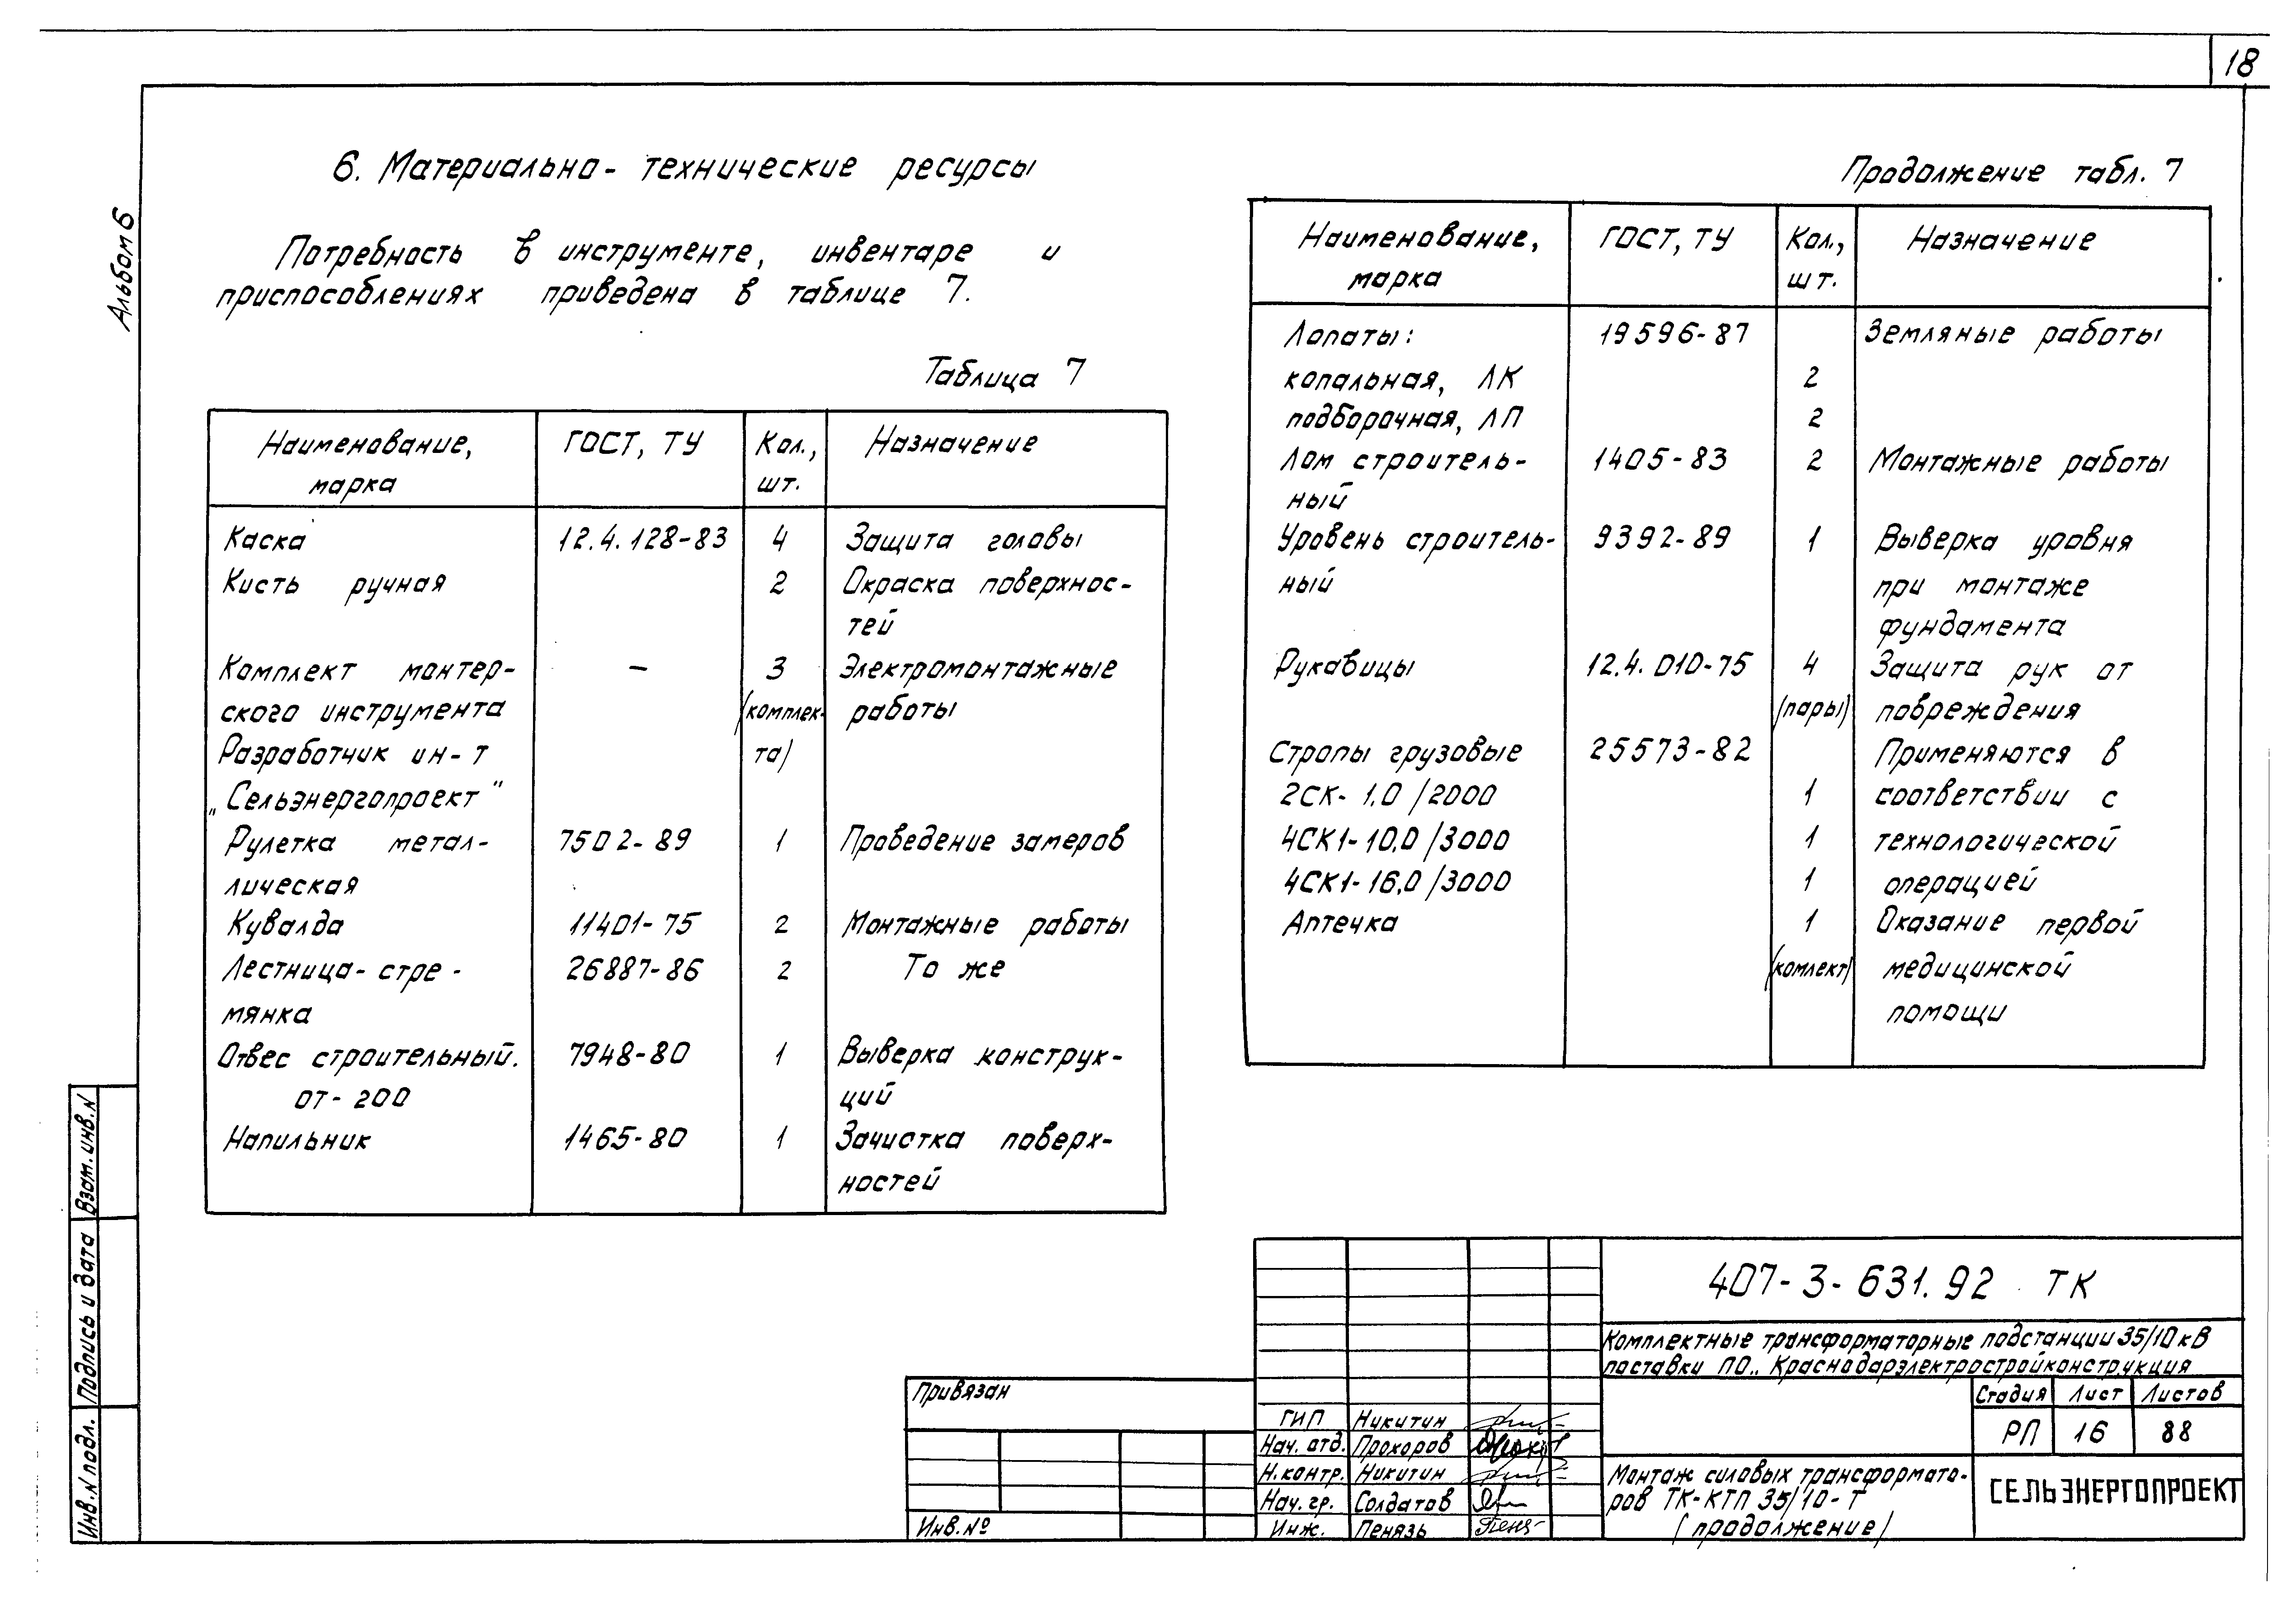 18
Альбом 6
6. Материально-технические ресурсы
Потребность в инструменте, инвентаре и
приспособлениях приведена в таблице 7.
Таблица 7
Наименование, ГОСТ, ТУ Кол., Назначение
марка шт.
Каска 12.4.128-83 4 Защита головы
Кисть ручная 2 Окраска поверхнос-
тей
Комплект монтер- — 3 Электромонтажные
ского инструмента (комплек- работы
Разработчик ин-т та)
„Сельэнергопроект"
Рулетка метал- 7502-89 1 Проведение замеров
лическая
Кувалда 11401-75 2 Монтажные работы
Лестница-стре- 26887-86 2 То же
мянка
Отвес строительный. 7948-80 1 Выверка конструк-
ОТ-200 ций
Напильник 1465-80 1 Зачистка поверх-
ностей
Продолжение табл. 7
Наименование, ГОСТ, ТУ Кол., Назначение
марка шт.
Лопаты: 19596-87 Земляные работы
копальная, ЛК 2
подборочная, ЛП 2
Лом строитель- 1405-83 2 Монтажные работы
ный
Уровень строитель- 9392-89 1 Выверка уровня
ный при монтаже
фундамента
Рукавицы 12.4.010-75 4 Защита рук от
(пары) повреждения
Стропы грузовые 25573-82 Применяются в
2СК-1,0/2000 1 соответствии с
4СК1-10,0/3000 1 технологической
4СК1-16,0/3000 1 операцией
Аптечка 1 Оказание первой
(комлект) медицинской
помощи
Взам. инв. N
Подпись и дата
Инв. N подл.
Привязан
Инв. №
ГИП Никитин
Нач. отд. Прохоров
Н. контр. Никитин
Нач. гр. Солдатов
Инж. Пенязь
407-3-631.92 ТК
Комплектные трансформаторные подстанции 35/10 кВ
поставки ПО „Краснодарэлектростройконструкция
Стадия Лист Листов
РП 16 88
Монтаж силовых трансформато-
ров ТК-КТП 35/10-Т
(продолжение)
СЕЛЬЭНЕРГОПРОЕКТ